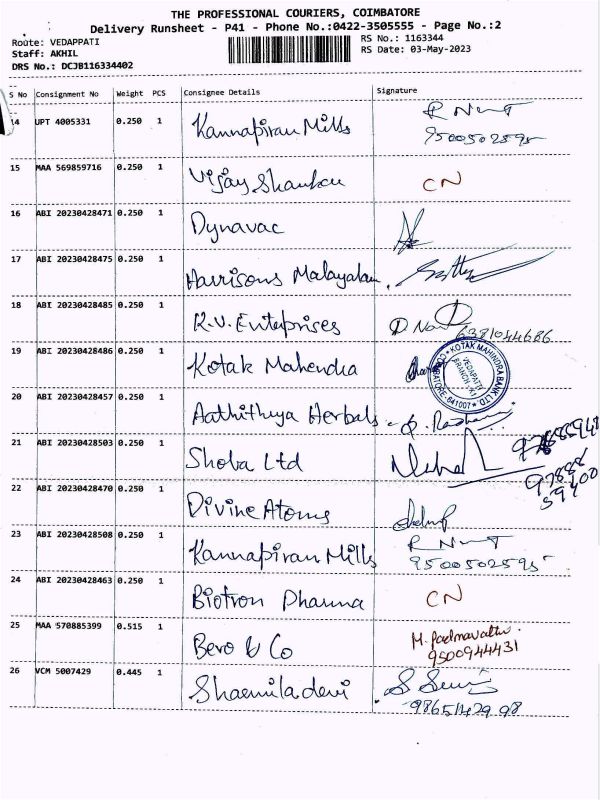 THE PROFESSIONAL COURIERS, COIMBATORE
Delivery Runsheet - P41 - Phone No.:0422-3505555 - Page No.:2
Route: VEDAPPATI
RS No.: 1163344
Staff: AKHIL
RS Date: 03-May-2023
DRS No.: DCJB116334402
S No Consignment No Weight PCS Consignee Details Signature
14 UPT 4005331 0.250 1 Kannapiran Mills R
9500502595
15 MAA 569859716 0.250 1 Vijay Shankar CN
16 ABI 20230428471 0.250 1 Dynavac
17 ABI 20230428475 0.250 1 Harrisons Malayalam
18 ABI 20230428485 0.250 1 R.V. Enterprises
6381044686
19 ABI 20230428486 0.250 1 Kotak Mahendra
KOTAK MAHINDRA BANK LTD
VEDAPATTI
BRANCH
COIMBATORE-641007
20 ABI 20230428457 0.250 1 Aathithya Herbals
21 ABI 20230428503 0.250 1 Shoba Ltd
97888
59400
22 ABI 20230428470 0.250 1 Divine Atoms
23 ABI 20230428508 0.250 1 Kannapiran Mills R
9500502595
24 ABI 20230428463 0.250 1 Biotron Pharma CN
25 MAA 570885399 0.515 1 Bero & Co M. Padmavathi
9500944431
26 VCM 5007429 0.445 1 Sharmiladevi